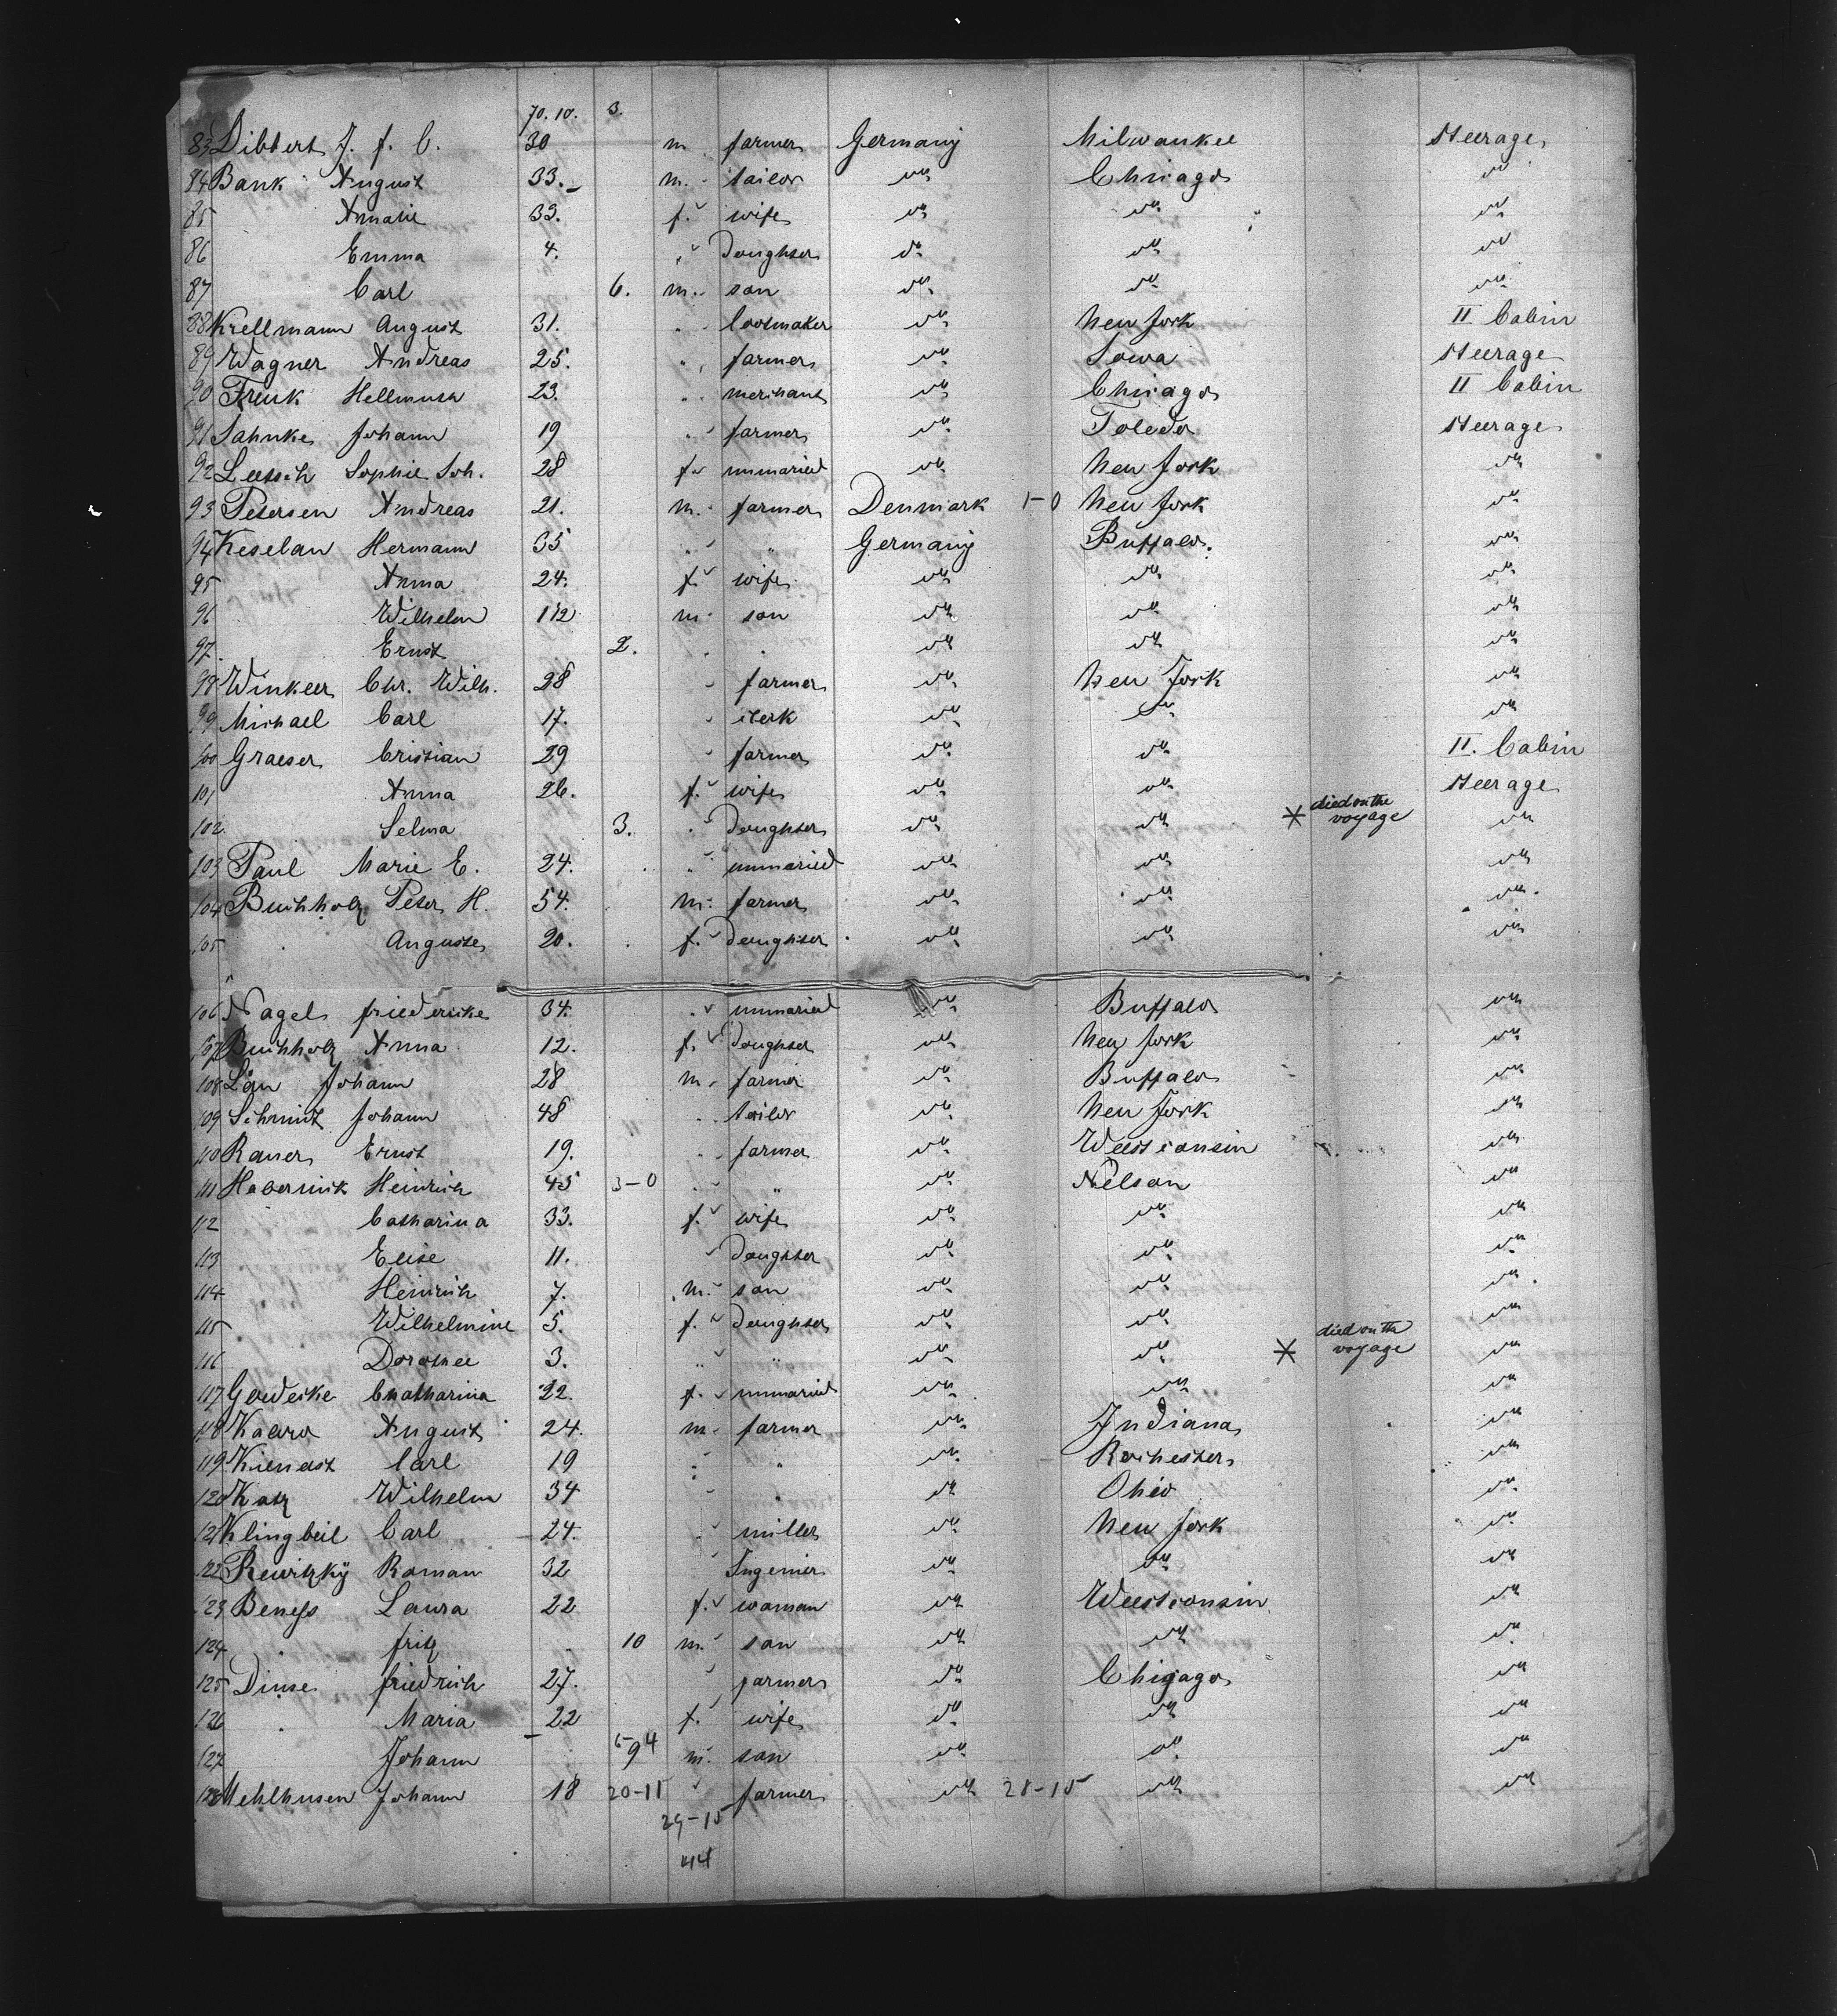 70. 10. 3.
83 Dibbert J. f. C. 30 m. farmer Germany Milwaukee steerage
84 Bank August 33. m. tailor do Chicago do
85 Amalie 33. f. wife do do do
86 Emma 4. " Doughter do do do
87 Carl 6. m. son do do do
88 Krellmann August 31. " bootmaker do New York II Cabin
89 Wagner Andreas 25. " farmer do Iowa steerage
90 Frenk Hellmuth 23. " merchant do Chicago II Cabin
91 Jahnke Johann 19 " farmer do Toledo steerage
92 Leetsch Sophie Joh. 28 f. unmaried do New York do
93 Petersen Andreas 21. m. farmer Denmark 1-0 New York do
94 Keselau Hermann 35 " " Germany Buffalo. do
95 Anna 24. f. wife do do do
96 Wilhelm 1 1/2 m. son do do do
97. Ernst 2. " " do do do
98 Winkler Chr. Wilh. 28 " farmer do New York do
99 Michael Carl 17. " clerk do do do
100 Graeser Cristian 29 " farmer do do II. Cabin
101 Anna 26. f. wife do do steerage
102. Selma 3. " Doughter do do * died on the voyage do
103 Paul Marie E. 24. " unmaried do do do
104 Buchholz Peter H. 54. m. farmer do do do
105 Auguste 20. f. Doughter do do do
106 Nagel friederike 34. " unmaried do Buffalo do
107 Buchholz Anna 12. f. Doughter do New York do
108 Lau Johann 28 m. farmer do Buffalo do
109 Schmidt Johann 48 " tailor do New York do
110 Rauer Ernst 19. " farmer do Weestconsin do
111 Habernick Heinrich 45 3-0 " " do Nelson do
112 Catharina 33. f. wife do do do
113 Elise 11. " Doughter do do do
114 Heinrich 7. m. son do do do
115 Wilhelmine 5. f. Doughter do do do
116 Dorothee 3. " " do do * died on the voyage do
117 Gaedeke Chatharina 22. f. unmaried do do do
118 August 24. m. farmer do Indiana do
119 Kienast Carl 19 " " do Rochester do
120 Katz Wilhelm 34 " " do Ohio do
121 Klingbeil Carl 24. " miller do New York do
122 Rewitzky Roman 32 " Ingenier do do do
123 Beness Laura 22 f. woman do Weestconsin do
124 " fritz 10 m. son do do do
125 Dinse friedrich 27. " farmer do Chigago do
126 " Maria 22 f. wife do do do
127 Johann 9 m. son do do do
128 Mehlhusen Johann 18 20-11 " farmer do 28-15 do do
29-15
44